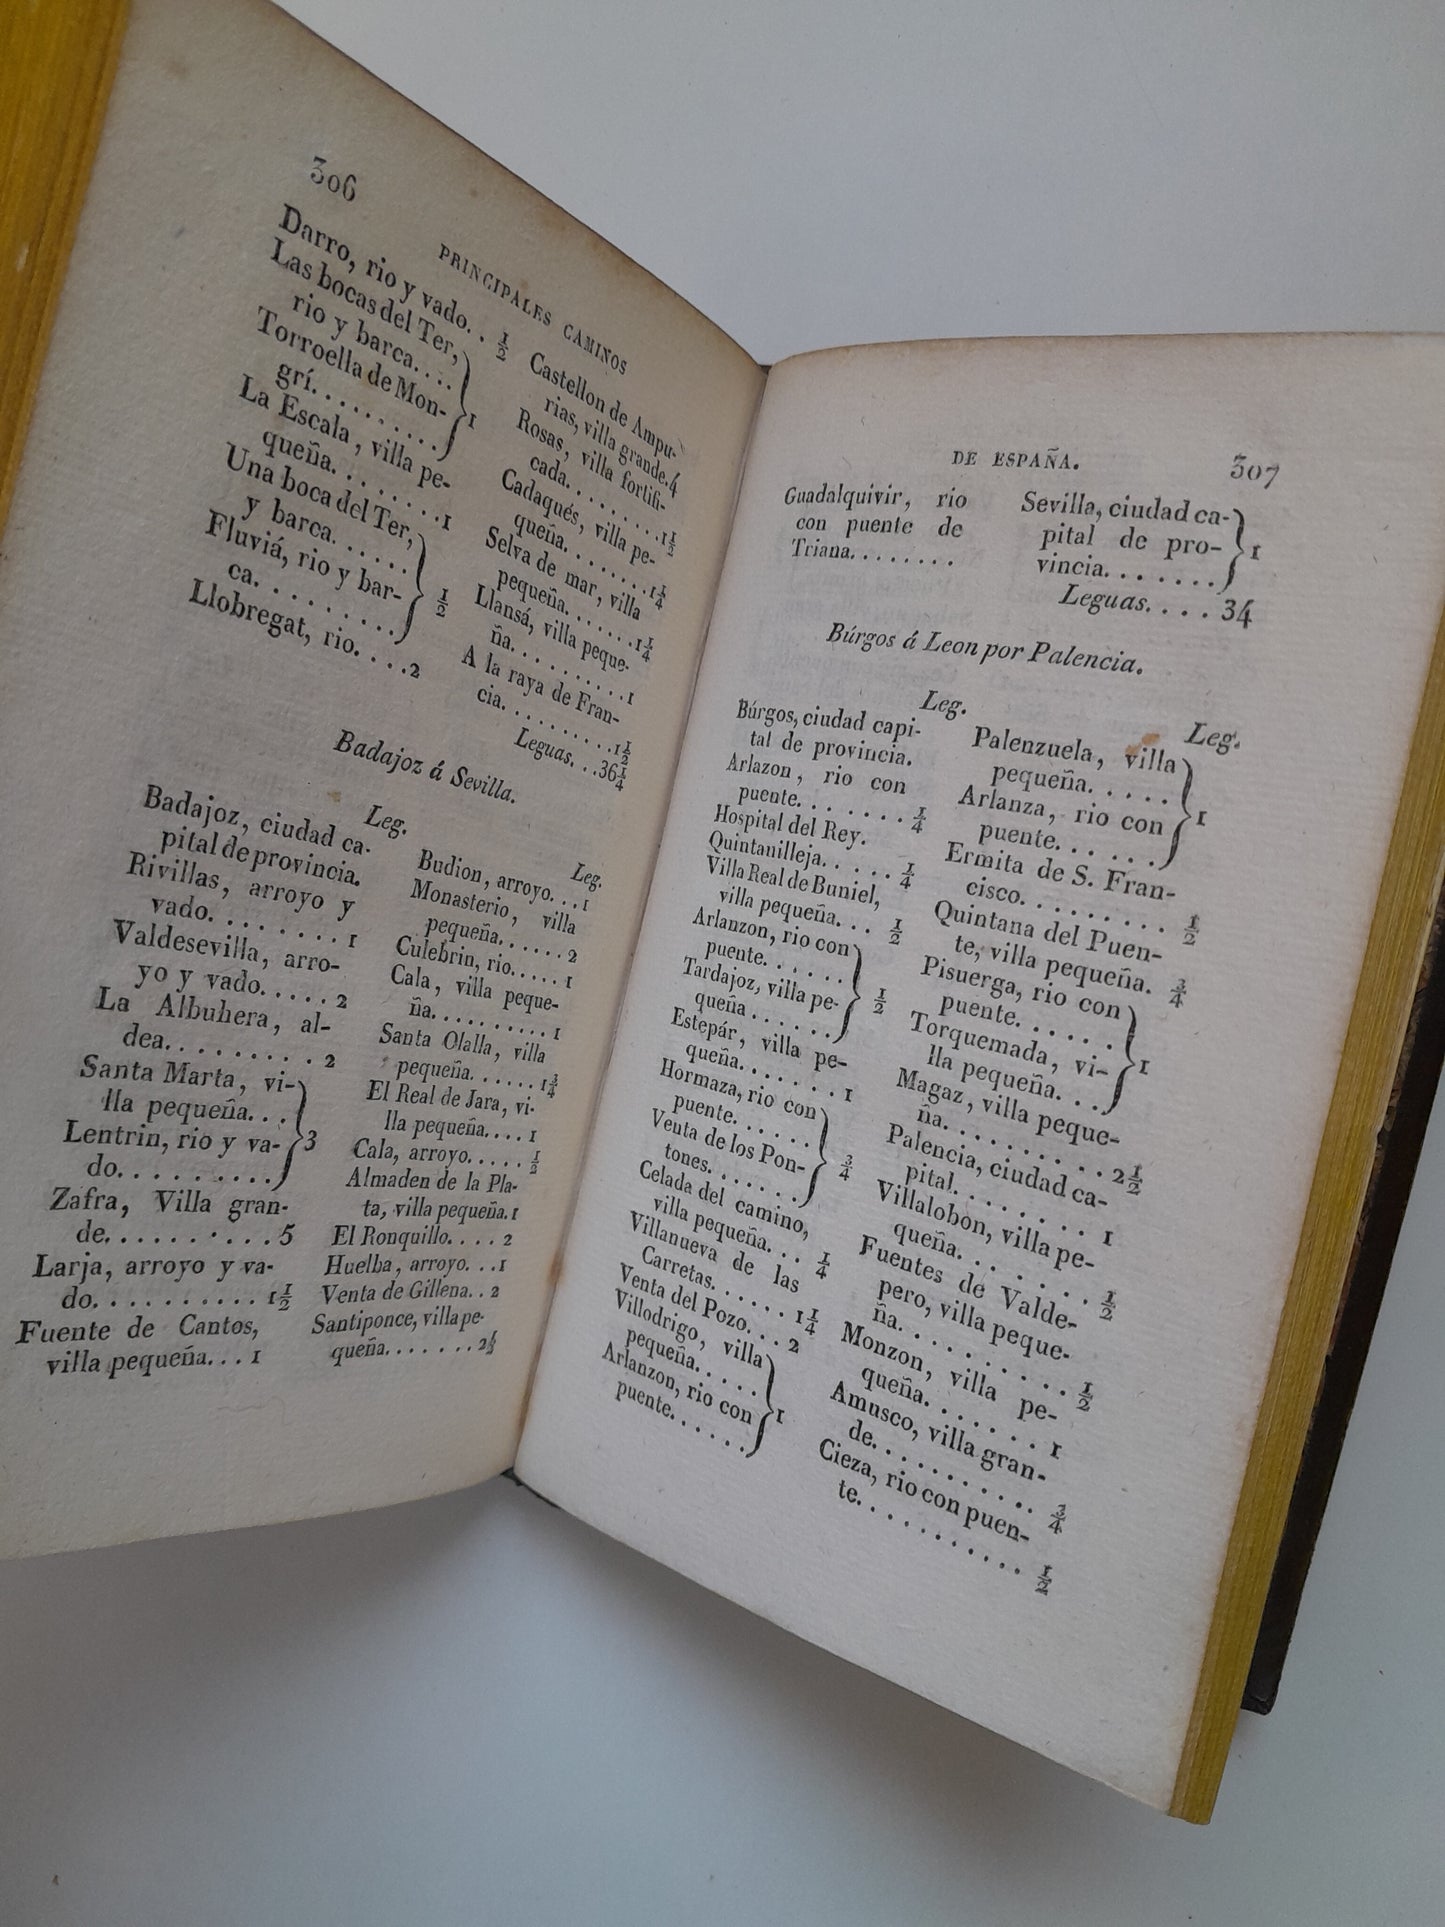 306
PRINCIPALES CAMINOS
Darro, rio y vado. . 1/2
Las bocas del Ter,
rio y barca. . . .
Torroella de Mon-
grí. . . . . . . . . 1
La Escala, villa pe-
queña. . . . . . . . 1
Una boca del Ter,
y barca. . . . . .
Fluviá, rio y bar-
ca. . . . . . . . . 1/2
Llobregat, rio. . . . 2
Castellon de Ampu-
rias, villa grande. 4
Rosas, villa fortifi-
cada. . . . . . . . . 1 1/2
Cadaqués, villa pe-
queña. . . . . . . . 1 1/4
Selva de mar, villa
pequeña. . . . . . . 1 1/4
Llansá, villa peque-
ña. . . . . . . . . . 1
A la raya de Fran-
cia. . . . . . . . . . 1 1/2
Leguas. . . 36 1/4
Badajoz á Sevilla.
Leg.
Badajoz, ciudad ca-
pital de provincia.
Rivillas, arroyo y
vado. . . . . . . . 1
Valdesevilla, arro-
yo y vado. . . . . 2
La Albuhera, al-
dea. . . . . . . . . 2
Santa Marta, vi-
lla pequeña. . .
Lentrin, rio y va-
do. . . . . . . . . . 3
Zafra, Villa gran-
de. . . . . . . . . . 5
Larja, arroyo y va-
do. . . . . . . . . . 1 1/2
Fuente de Cantos,
villa pequeña. . . 1
Leg.
Budion, arroyo. . . 1
Monasterio, villa
pequeña. . . . . . 2
Culebrin, rio. . . . . 1
Cala, villa peque-
ña. . . . . . . . . . 1
Santa Olalla, villa
pequeña. . . . . . 1 3/4
El Real de Jara, vi-
lla pequeña. . . . 1
Cala, arroyo. . . . . 1/2
Almaden de la Pla-
ta, villa pequeña. 1
El Ronquillo. . . . 2
Huelba, arroyo. . . 1
Venta de Gillena. . 2
Santiponce, villa pe-
queña. . . . . . . 2
DE ESPAÑA.
307
Guadalquivir, rio
con puente de
Triana. . . . . . . .
Sevilla, ciudad ca-
pital de pro-
vincia. . . . . . . 1
Leguas. . . . 34
Búrgos á Leon por Palencia.
Leg.
Búrgos, ciudad capi-
tal de provincia.
Arlazon, rio con
puente. . . . . . . 1/4
Hospital del Rey.
Quintanilleja. . . . . 1/4
Villa Real de Buniel,
villa pequeña. . . 1/2
Arlanzon, rio con
puente. . . . . .
Tardajoz, villa pe-
queña . . . . . . 1/2
Estepár, villa pe-
queña. . . . . . . . 1
Hormaza, rio con
puente. . . . . .
Venta de los Pon-
tones. . . . . . . 3/4
Celada del camino,
villa pequeña. . . 1/4
Villanueva de las
Carretas. . . . . . 1 1/4
Venta del Pozo. . . 2
Villodrigo, villa
pequeña. . . . .
Arlanzon, rio con
puente. . . . . . 1
Leg.
Palenzuela, villa
pequeña. . . . .
Arlanza, rio con
puente. . . . . . 1
Ermita de S. Fran-
cisco. . . . . . . . . 1/2
Quintana del Puen-
te, villa pequeña. 3/4
Pisuerga, rio con
puente. . . . . .
Torquemada, vi-
lla pequeña. . . 1
Magaz, villa peque-
ña. . . . . . . . . . 2 1/2
Palencia, ciudad ca-
pital. . . . . . . . 1
Villalobon, villa pe-
queña. . . . . . . . 1/2
Fuentes de Valde-
pero, villa peque-
ña. . . . . . . . . . 1/2
Monzon, villa pe-
queña. . . . . . . 1
Amusco, villa gran-
de. . . . . . . . . . 3/4
Cieza, rio con puen-
te. . . . . . . . . . . 1/2